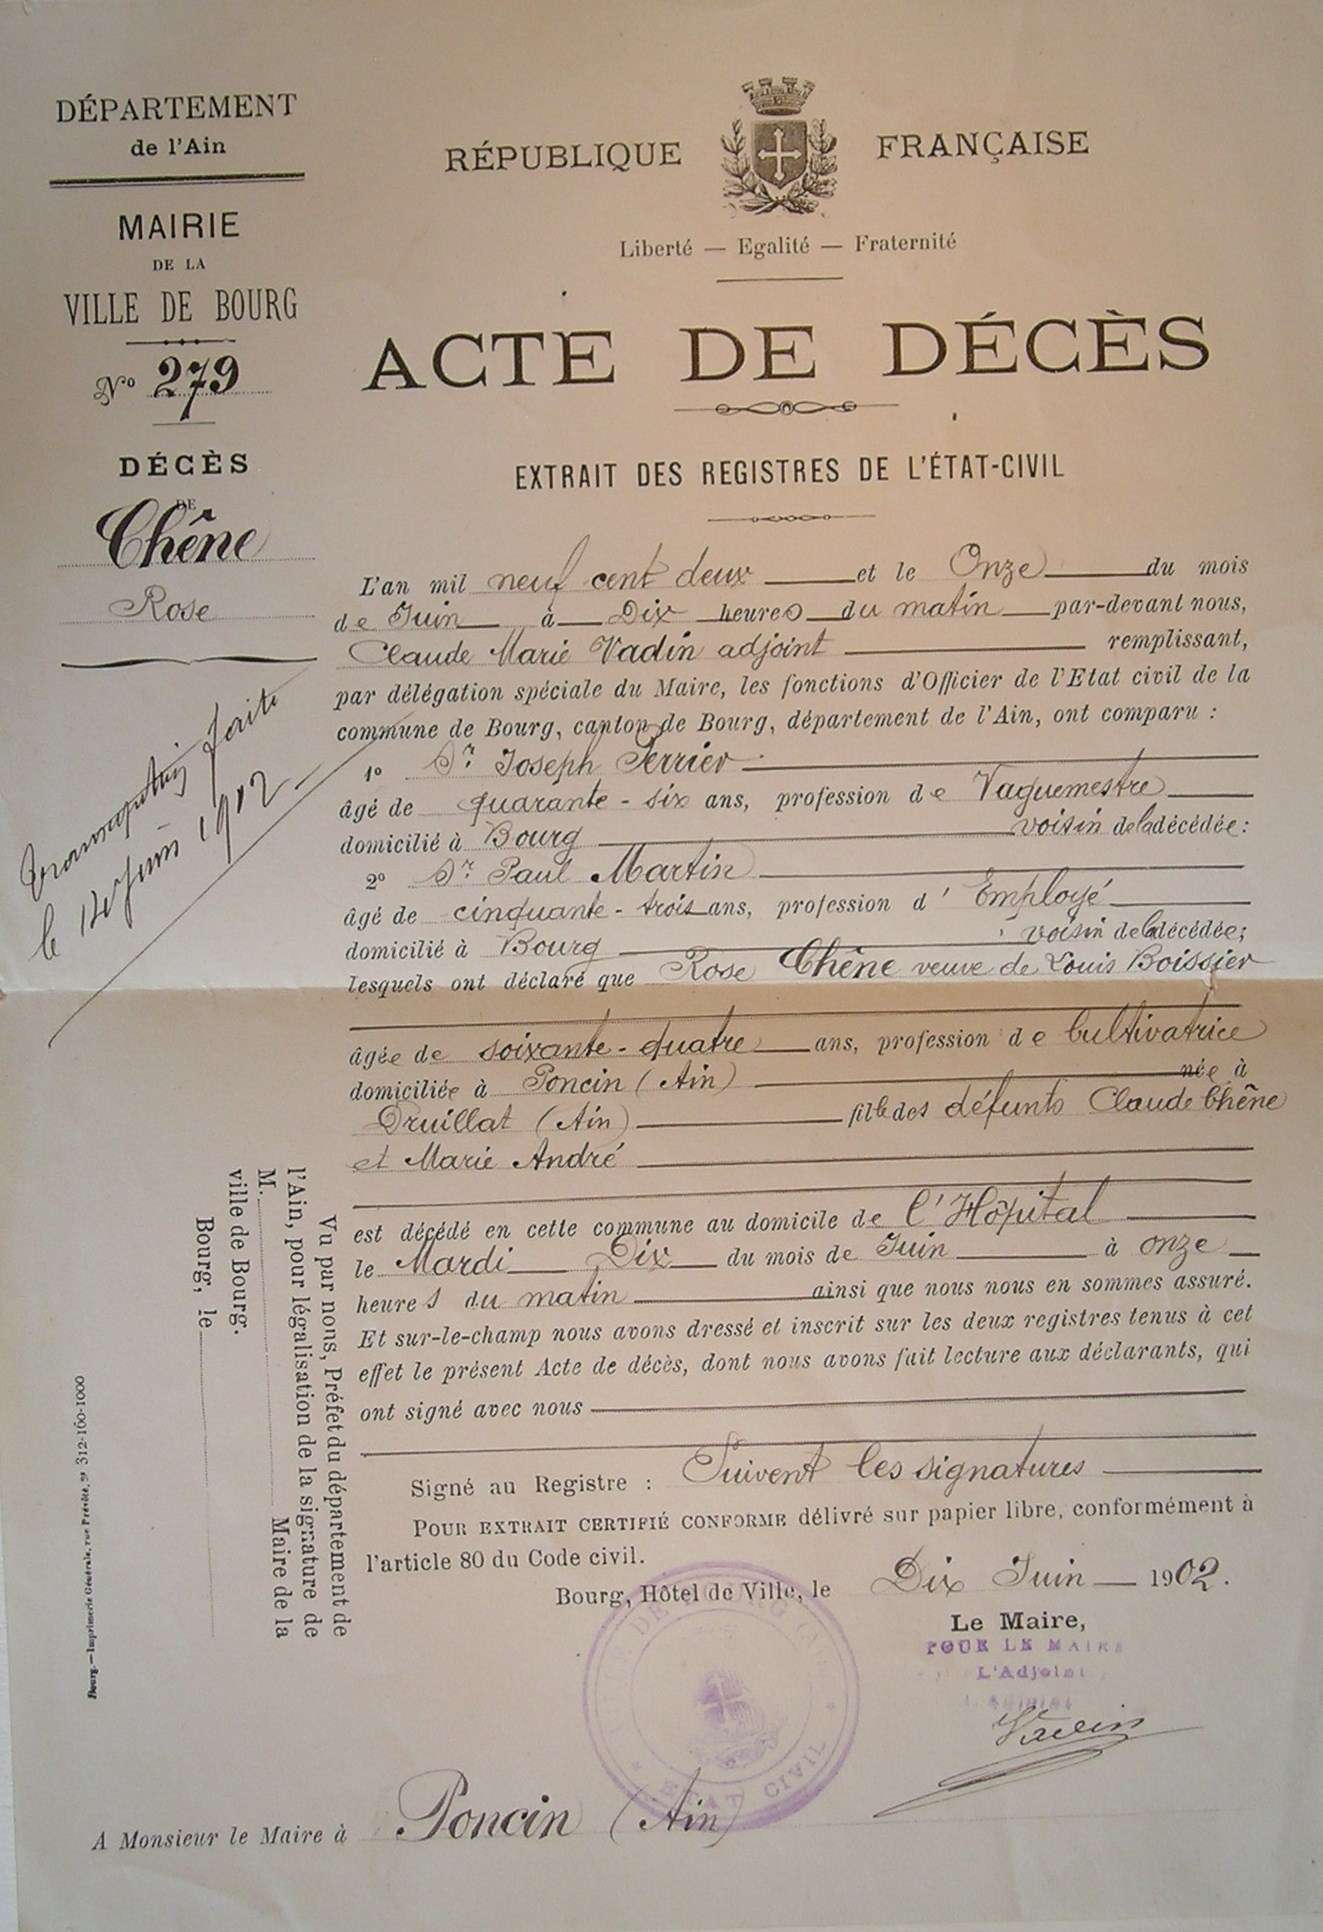 DÉPARTEMENT
de l'Ain
MAIRIE
DE LA
VILLE DE BOURG
N° 279
DÉCÈS
DE
Chêne
Rose
Transcription faite
le 14 Juin 1902
RÉPUBLIQUE FRANÇAISE
Liberté — Egalité — Fraternité
ACTE DE DÉCÈS
EXTRAIT DES REGISTRES DE L'ÉTAT-CIVIL
L'an mil neuf cent deux et le Onze du mois
de Juin à Dix heures du matin par-devant nous,
Claude Marie Vadin adjoint remplissant,
par délégation spéciale du Maire, les fonctions d'Officier de l'Etat civil de la
commune de Bourg, canton de Bourg, département de l'Ain, ont comparu :
1° Sr. Joseph Perrier
âgé de quarante-six ans, profession de Vaguemestre
domicilié à Bourg voisin de la décédée:
2° Sr. Paul Martin
âgé de cinquante-trois ans, profession d'Employé
domicilié à Bourg voisin de la décédée;
lesquels ont déclaré que Rose Chêne veuve de Louis Boissier
âgée de soixante-quatre ans, profession de Cultivatrice
domiciliée à Poncin (Ain) née à
Druillat (Ain) fille des défunts Claude Chêne
et Marie André
est décédé en cette commune au domicile de l'Hôpital
le Mardi Dix du mois de Juin à onze
heures du matin ainsi que nous nous en sommes assuré.
Et sur-le-champ nous avons dressé et inscrit sur les deux registres tenus à cet
effet le présent Acte de décès, dont nous avons fait lecture aux déclarants, qui
ont signé avec nous
Signé au Registre : Suivent les signatures
POUR EXTRAIT CERTIFIÉ CONFORME délivré sur papier libre, conformément à
l'article 80 du Code civil.
Bourg, Hôtel de Ville, le Dix Juin 1902.
Le Maire,
POUR LE MAIRE
L'Adjoint
Vadin
ÉTAT CIVIL
A Monsieur le Maire à Poncin (Ain)
Vu par nous, Préfet du département de
l'Ain, pour légalisation de la signature de
M. Maire de la
ville de Bourg.
Bourg, le
Bourg.—Imprimerie Générale, rue Prévôté, 312-160-1000